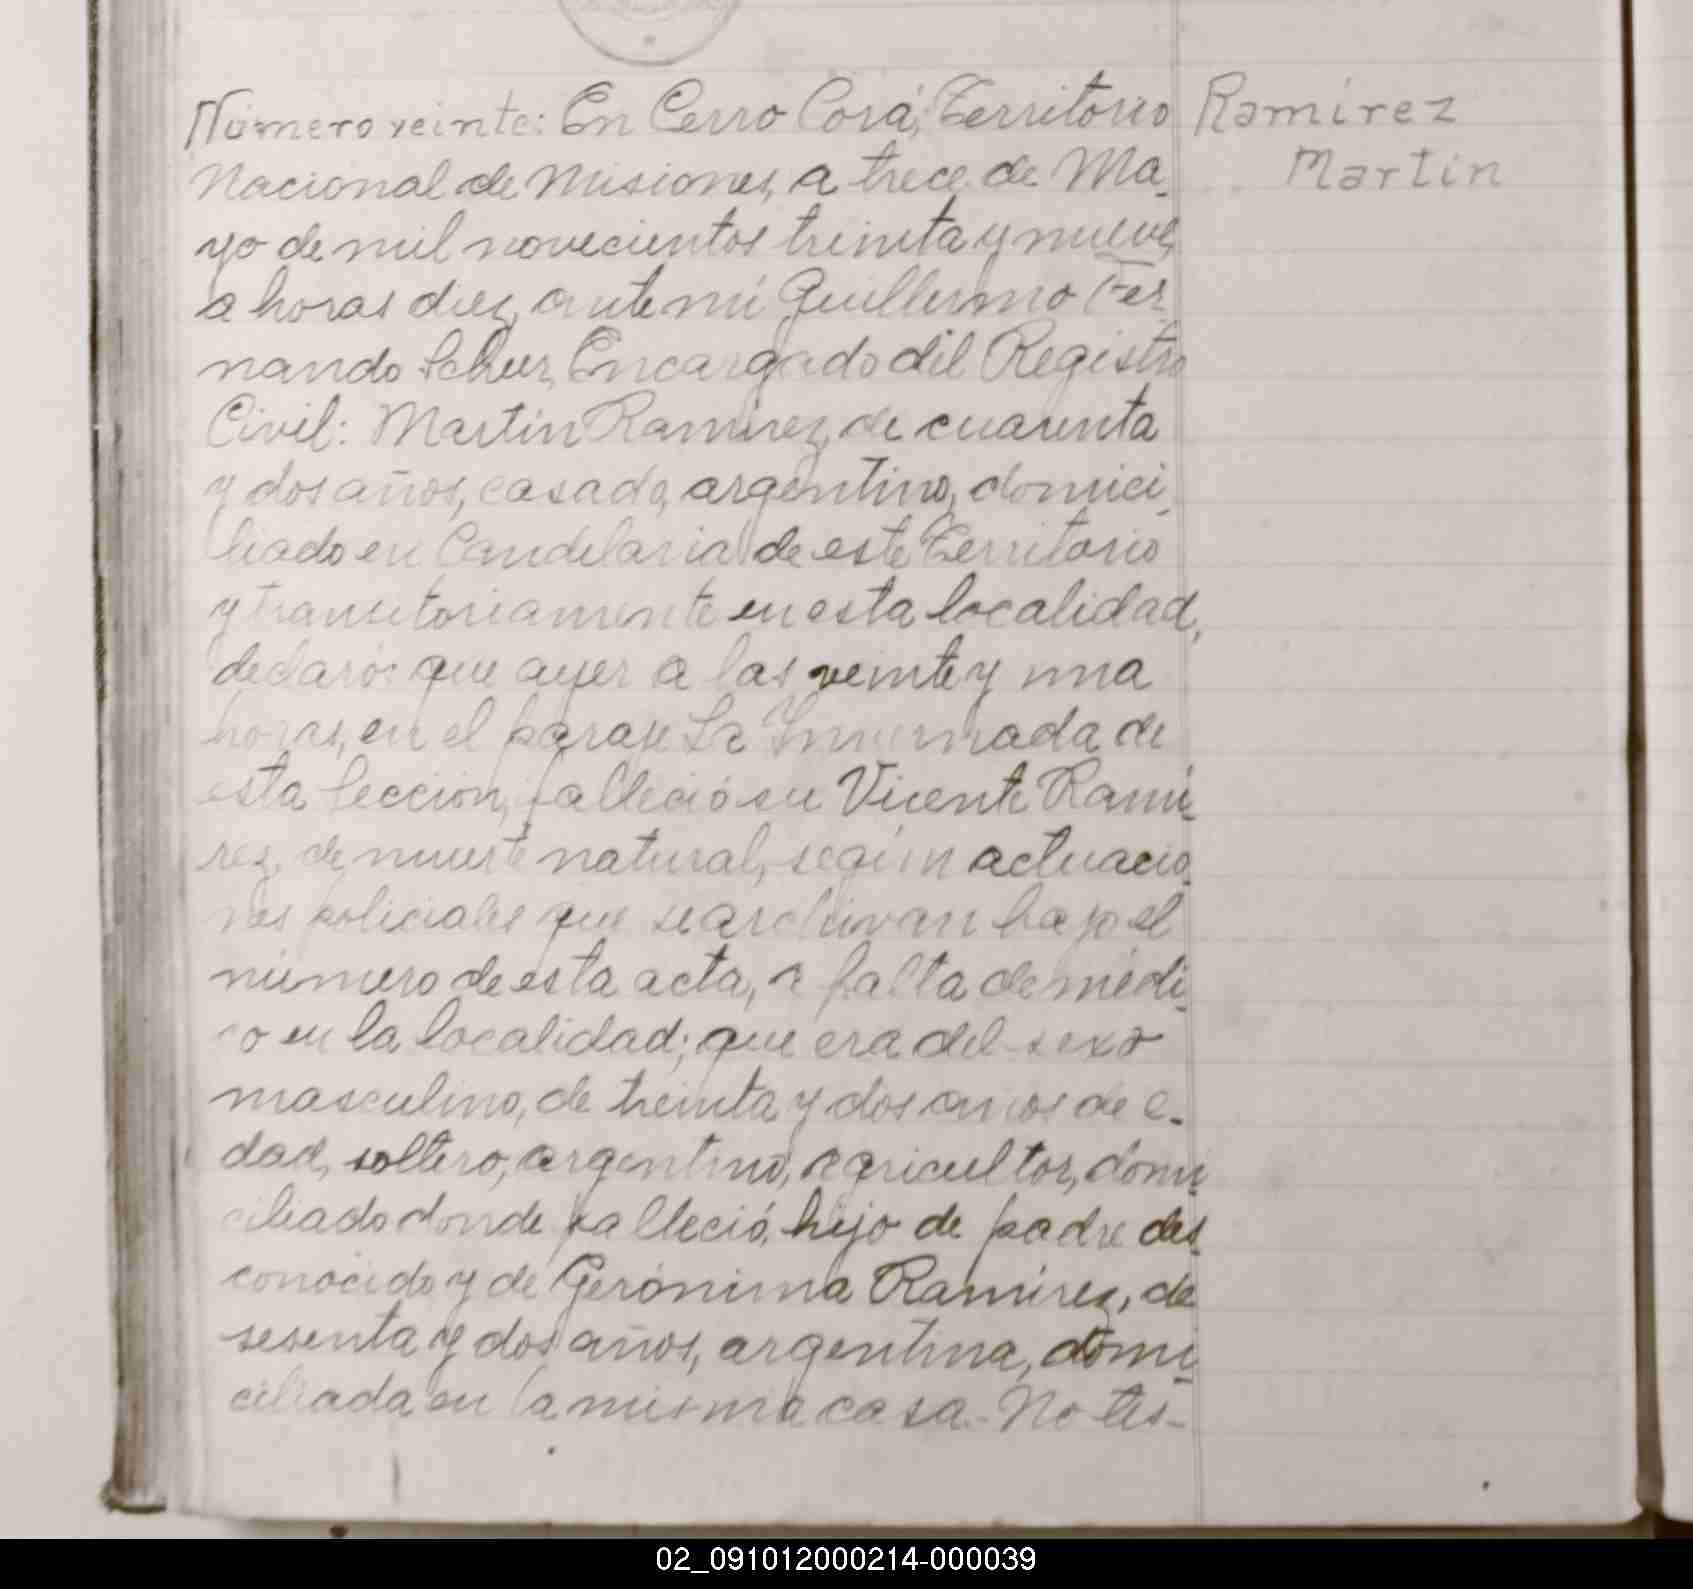 Número veinte: En Cerro Corá, Territorio
Nacional de Misiones, a trece de Ma-
yo de mil novecientos treinta y nueve,
a horas diez, ante mí Guillermo Fer-
nando Scheer, Encargado del Registro
Civil: Martin Ramirez, de cuarenta
y dos años, casado, argentino, domici-
liado en Candelaria de este Territorio
y transitoriamente en esta localidad,
declaró: que ayer a las veinte y una
horas, en el paraje La Invernada de
esta Sección, falleció su Vicente Rami-
rez, de muerte natural, según actuacio-
nes policiales que se archivan bajo el
número de esta acta, a falta de médi-
co en la localidad; que era del sexo
masculino, de treinta y dos años de e-
dad, soltero, argentino, agricultor, domi-
ciliado donde falleció, hijo de padre des-
conocido y de Gerónima Ramirez, de
sesenta y dos años, argentina, domi-
ciliada en la misma casa.- No tes-
Ramirez
Martin
02_091012000214-000039